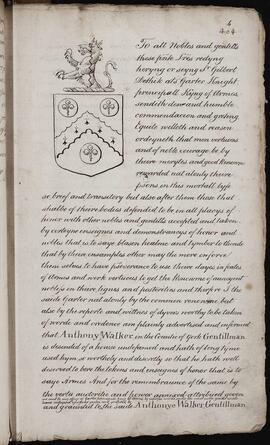 4
404
To all Nobles and gentills
these pnte Lres redyng
heryng or seyng Sr. Gilbert
Dethik als Garter Knight
principall Kyng of Armes
sendith dew and humble
commendacion and greting
Equite willeth and reason
ordeyneth that men vertuous
and of noble courage be by
theire merytes and good Renowne
rewarded not alonly theire
psons in this mortall lyffe
so breef and transitory but also after them those that
shalbe of theire bodies discended to be in all places of
honor with other nobles and gentills accepted and taken
by certeyne ensignes and demonstrances of honor and
nobles that is to say blazon healme and tymbre to thende
that by theire ensamples other may the more inforce
them selves to have perseverance to use theire dayes in feates
of armes and work vertuous to get the Renowne of auncyent
nobless in theire lignes and posterities and therfore I the
saide Garter not alonly by the common renowne but
also by the report and wittnes of dyvers worthy to be taken
of worde and credence am plainly advertised and informed
that Anthony Walker in the Countie of York Gentillman
is descended of a house undefamed and hath of long tyme
used hym so worthely and discretly so that he hath well
deserved to bere the tokens and ensignes of honor that is to
saye Armes And for the remembraunce of the same by
the vertu auctorite and power annexed attributed geven
and graunted to the saide Anthonye Walker Gentillman